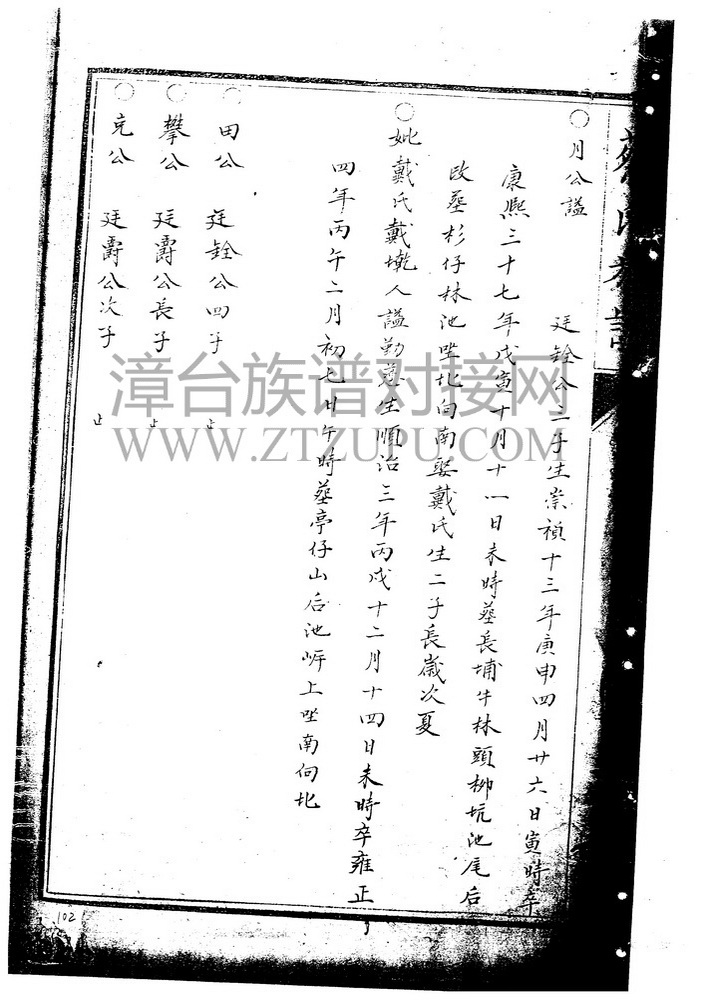 月公謚
廷銓公三子生崇禎十三年庚申四月廿六日寅時卒
康熙三十七年戊寅十月十一日未時葬長埔牛林頭柳坑池尾后
改葬杉仔林池坐北向南娶戴氏生二子長歲次夏
妣戴氏戴墘人謚勤慈生順治三年丙戌十二月十四日未時卒雍正
四年丙午二月初七日午時葬亭仔山后池㟁上坐南向北
田公 廷銓公四子 止
攀公 廷爵公長子 止
克公 廷爵公次子 止
102
漳台族谱对接网
WWW.ZTZUPU.COM